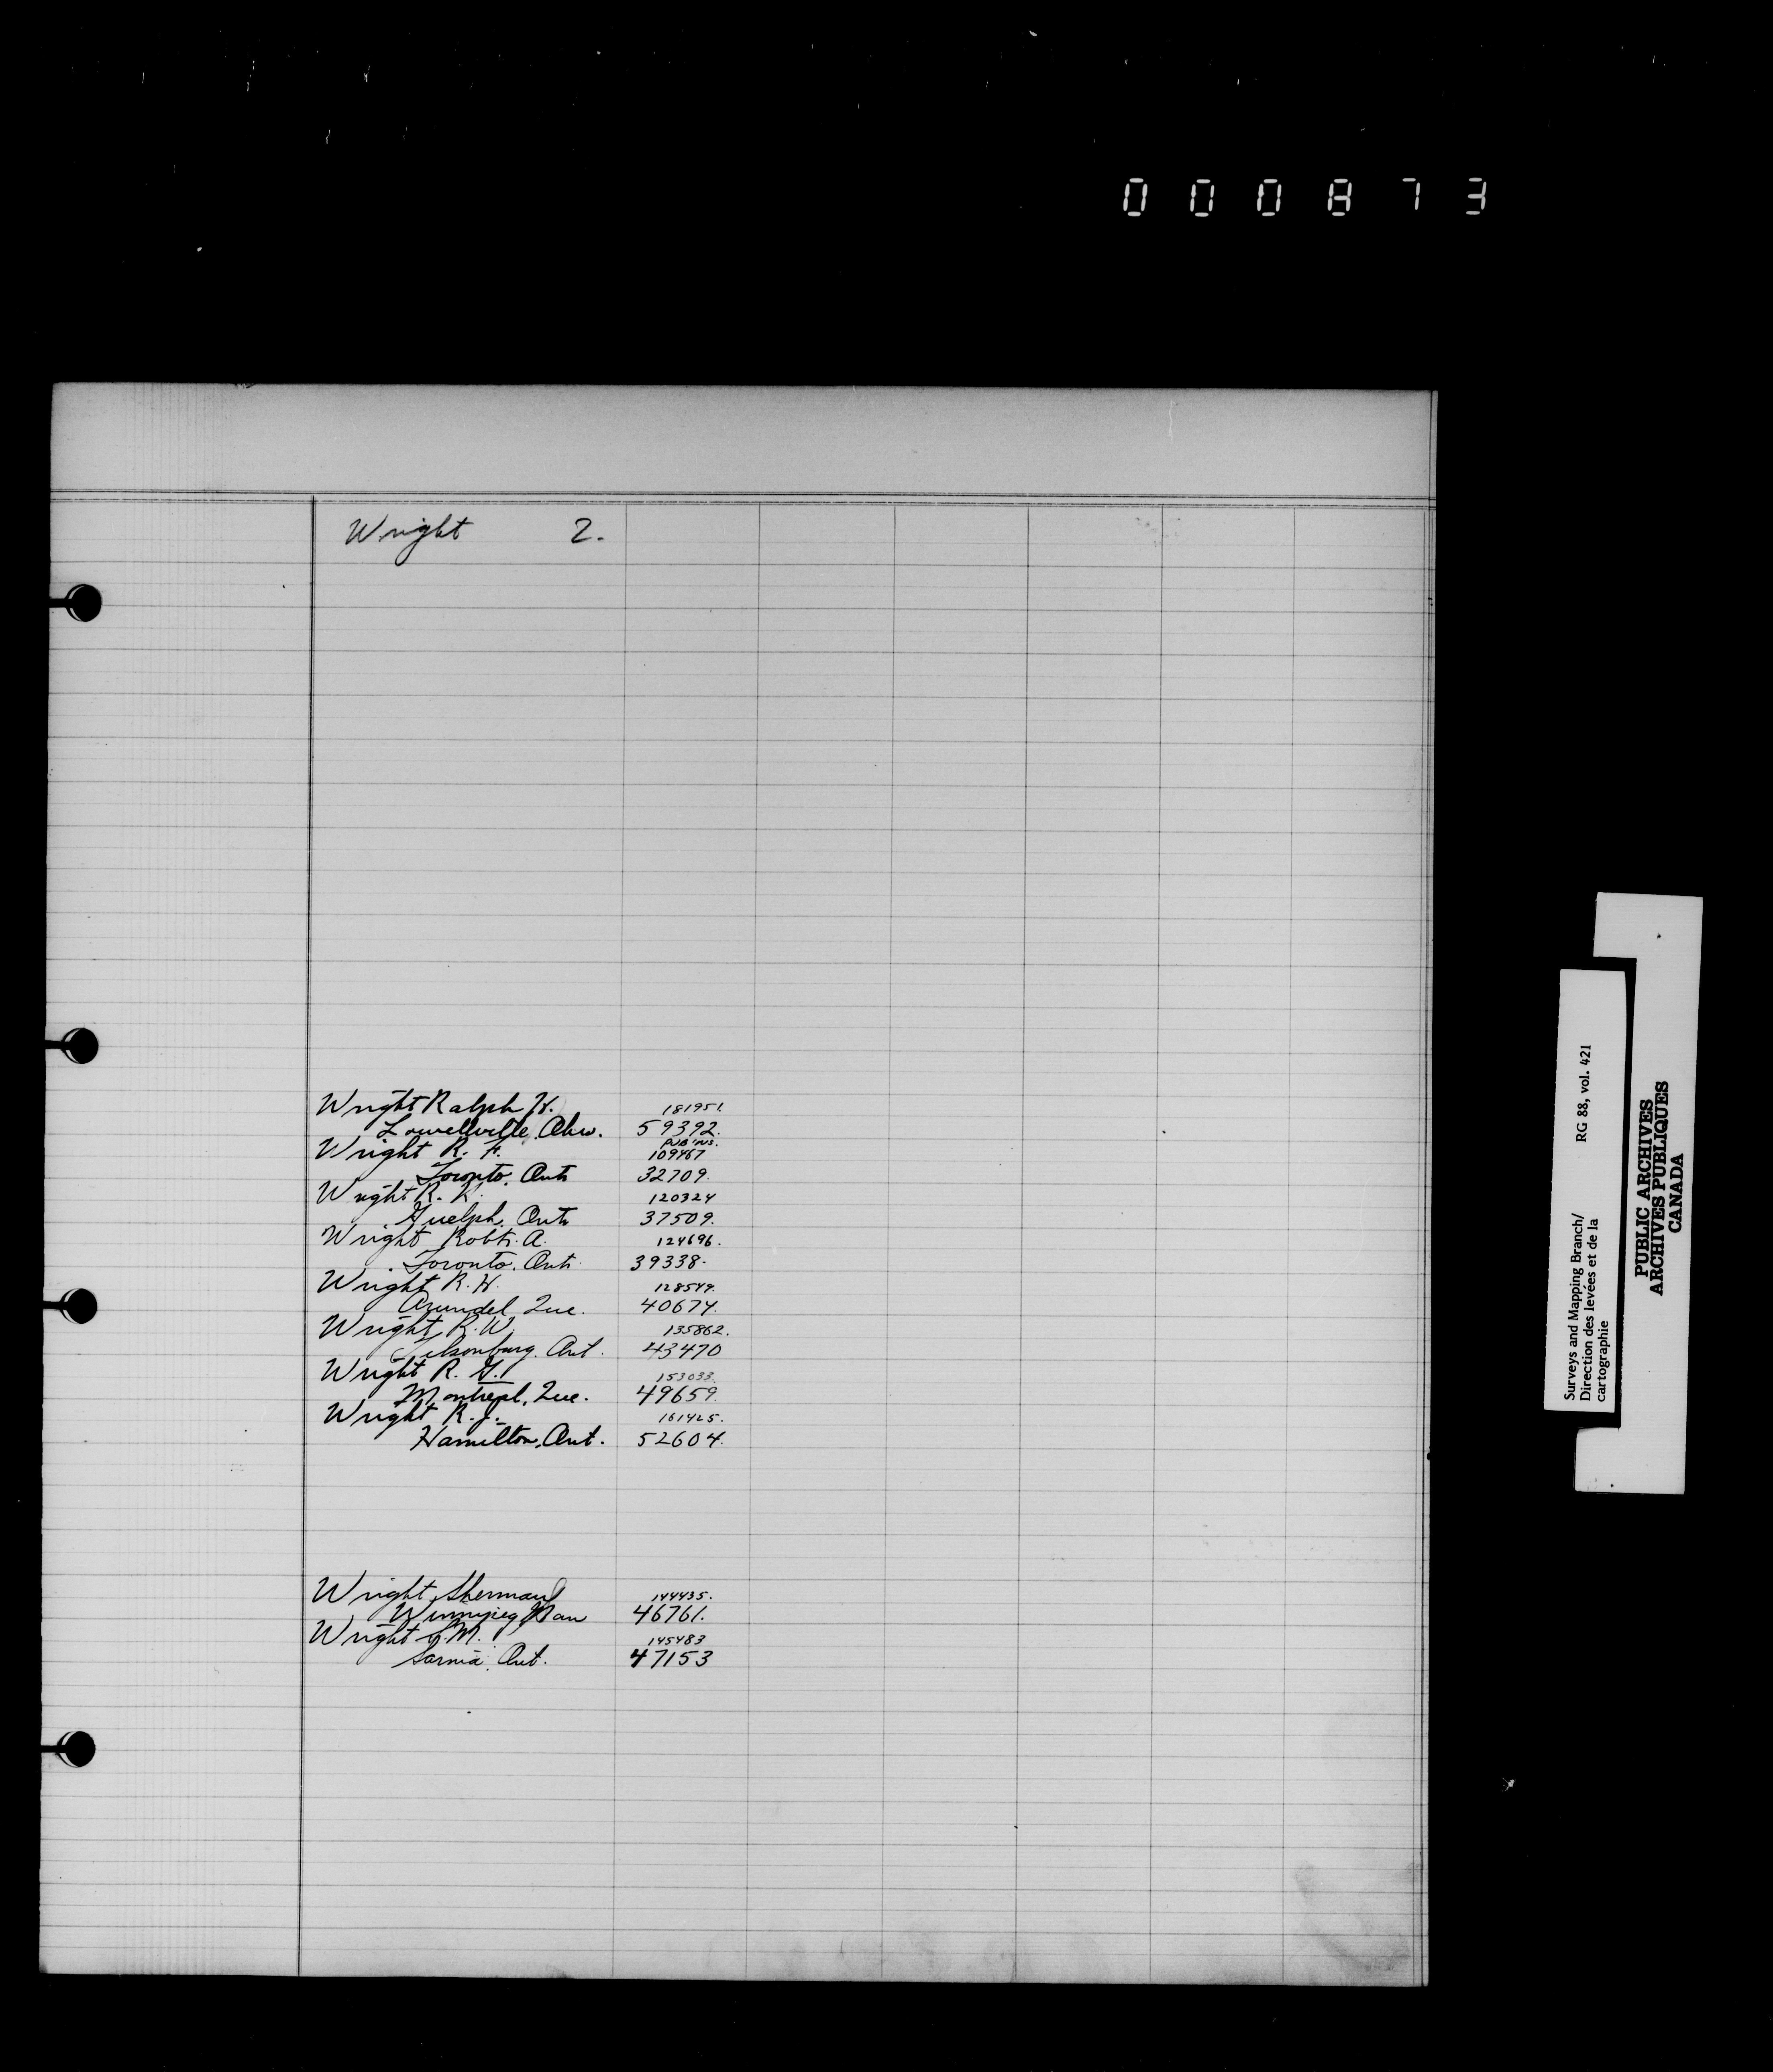 000873
Wright 2.
Wright Ralph H. 181951.
Lowellville, Ohio. 59392.
PUB'NS.
Wright R. F. 109467
Toronto, Ont. 32709.
Wright R. K. 120324
Guelph, Ont. 37509.
Wright Robt. A. 124696.
Toronto, Ont. 39338.
Wright R. H. 128549.
Arundel, Que. 40674.
Wright R. W. 135862.
Tilsonburg, Ont. 43470
Wright R. G. 153033.
Montreal, Que. 49659.
Wright R. J. 161425.
Hamilton, Ont. 52604.
Wright Sherman 144435.
Winnipeg Man 46761.
Wright S. M. 145483
Sarnia, Ont. 47153
Surveys and Mapping Branch/
Direction des levées et de la
cartographie
RG 88, vol. 421
PUBLIC ARCHIVES
ARCHIVES PUBLIQUES
CANADA